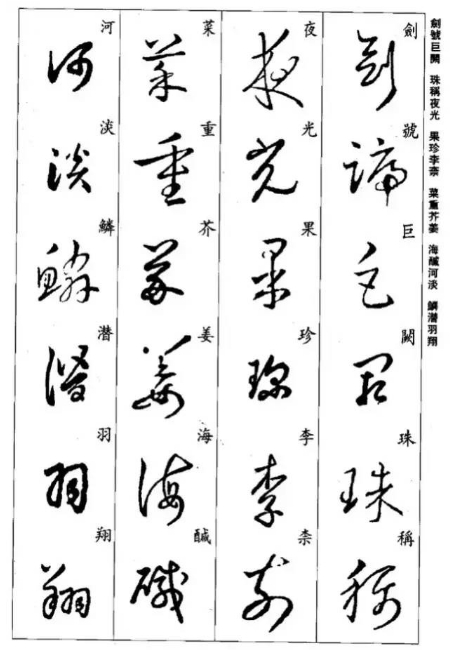 劍號巨闕 珠稱夜光 果珍李柰 菜重芥姜 海醎河淡 鱗潛羽翔
劍號巨闕珠稱
夜光果珍李柰
菜重芥姜海醎
河淡鱗潛羽翔